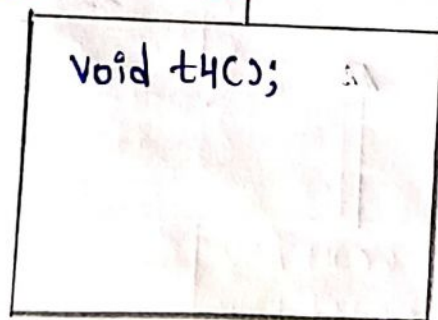 Void t4();